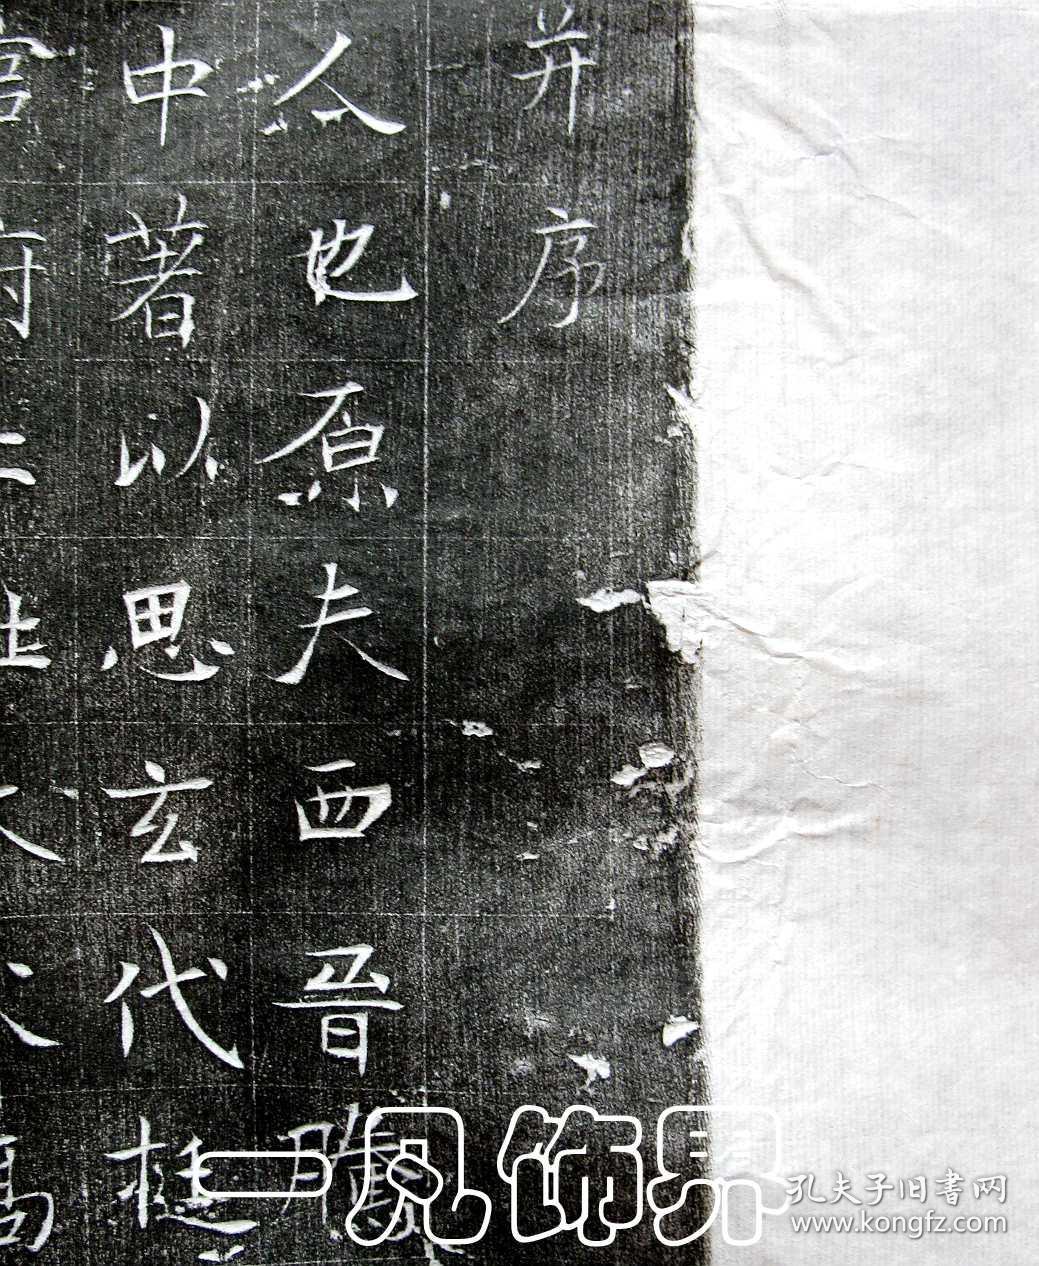 并序
人也原夫西晉騰
中著以思玄代挺
一见饰界
孔夫子旧书网
www.kongfz.com